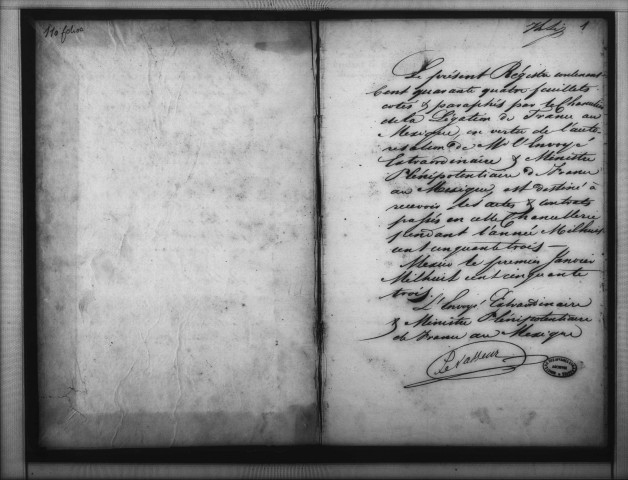 110 folios
1
Le présent Régistre contenant
Cent quarante quatre feuillets
cotés & paraphés par le Chancelier
de la Légation de France au
Mexique, en vertu de l'auto
risation de Mr l'Envoyé
Extraordinaire & Ministre
Plénipotentiaire de France
au Mexique, est destiné à
recevoir les actes & contrats
passés en cette Chancellerie
pendant l'année Milhuit
cent cinquante trois —
Mexico le premier Janvier
Milhuit cent cinquante
trois.
L'Envoyé Extraordinaire
& Ministre Plénipotentiaire
de France au Mexique
Levasseur